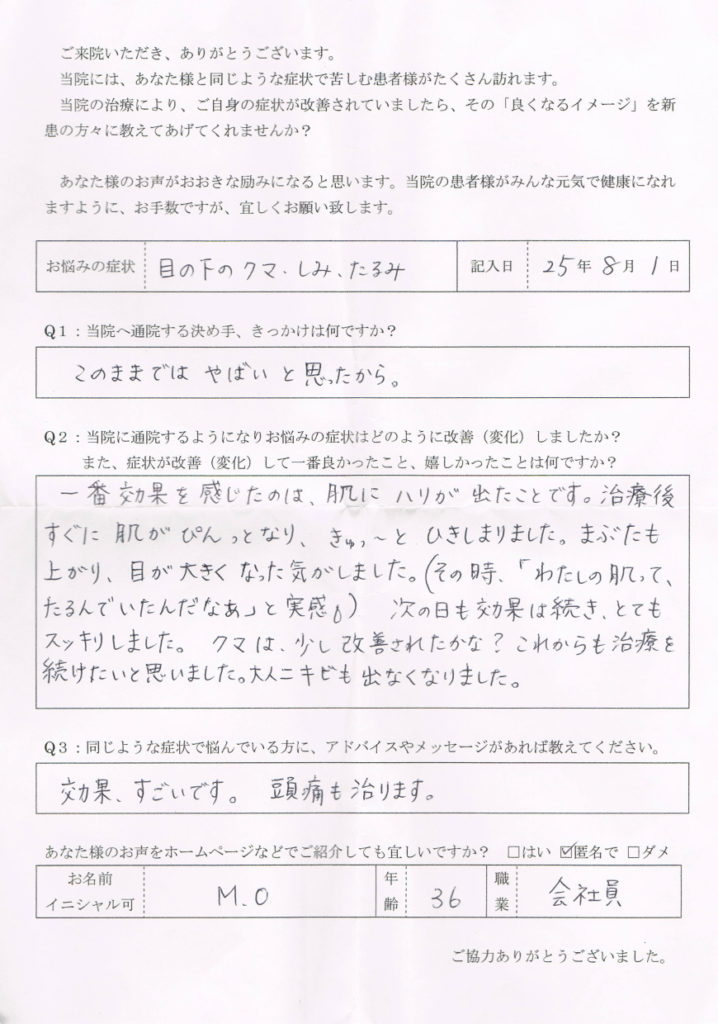 ご来院いただき、ありがとうございます。
当院には、あなた様と同じような症状で苦しむ患者様がたくさん訪れます。
当院の治療により、ご自身の症状が改善されていましたら、その「良くなるイメージ」を新
患の方々に教えてあげてくれませんか？
あなた様のお声がおおきな励みになると思います。当院の患者様がみんな元気で健康になれ
ますように、お手数ですが、宜しくお願い致します。
お悩みの症状 目の下のクマ・しみ、たるみ 記入日 25年 8月 1日
Q1：当院へ通院する決め手、きっかけは何ですか？
このままでは やばい と思ったから。
Q2：当院に通院するようになりお悩みの症状はどのように改善（変化）しましたか？
また、症状が改善（変化）して一番良かったこと、嬉しかったことは何ですか？
一番効果を感じたのは、肌に ハリが 出たことです。治療後
すぐに 肌が ぴんっとなり、きゅっ〜と ひきしまりました。まぶたも
上がり、目が大きく なった気がしました。(その時、「わたしの肌って、
たるんでいたんだなぁ」と実感♪) 次の日も効果は続き、とても
スッキリしました。 クマは、少し改善されたかな？これからも治療を
続けたいと思いました。大人ニキビも 出なくなりました。
Q3：同じような症状で悩んでいる方に、アドバイスやメッセージがあれば教えてください。
効果、すごいです。 頭痛も治ります。
あなた様のお声をホームページなどでご紹介しても宜しいですか？ □はい ☑匿名で □ダメ
お名前 イニシャル可 M.O 年齢 36 職業 会社員
ご協力ありがとうございました。